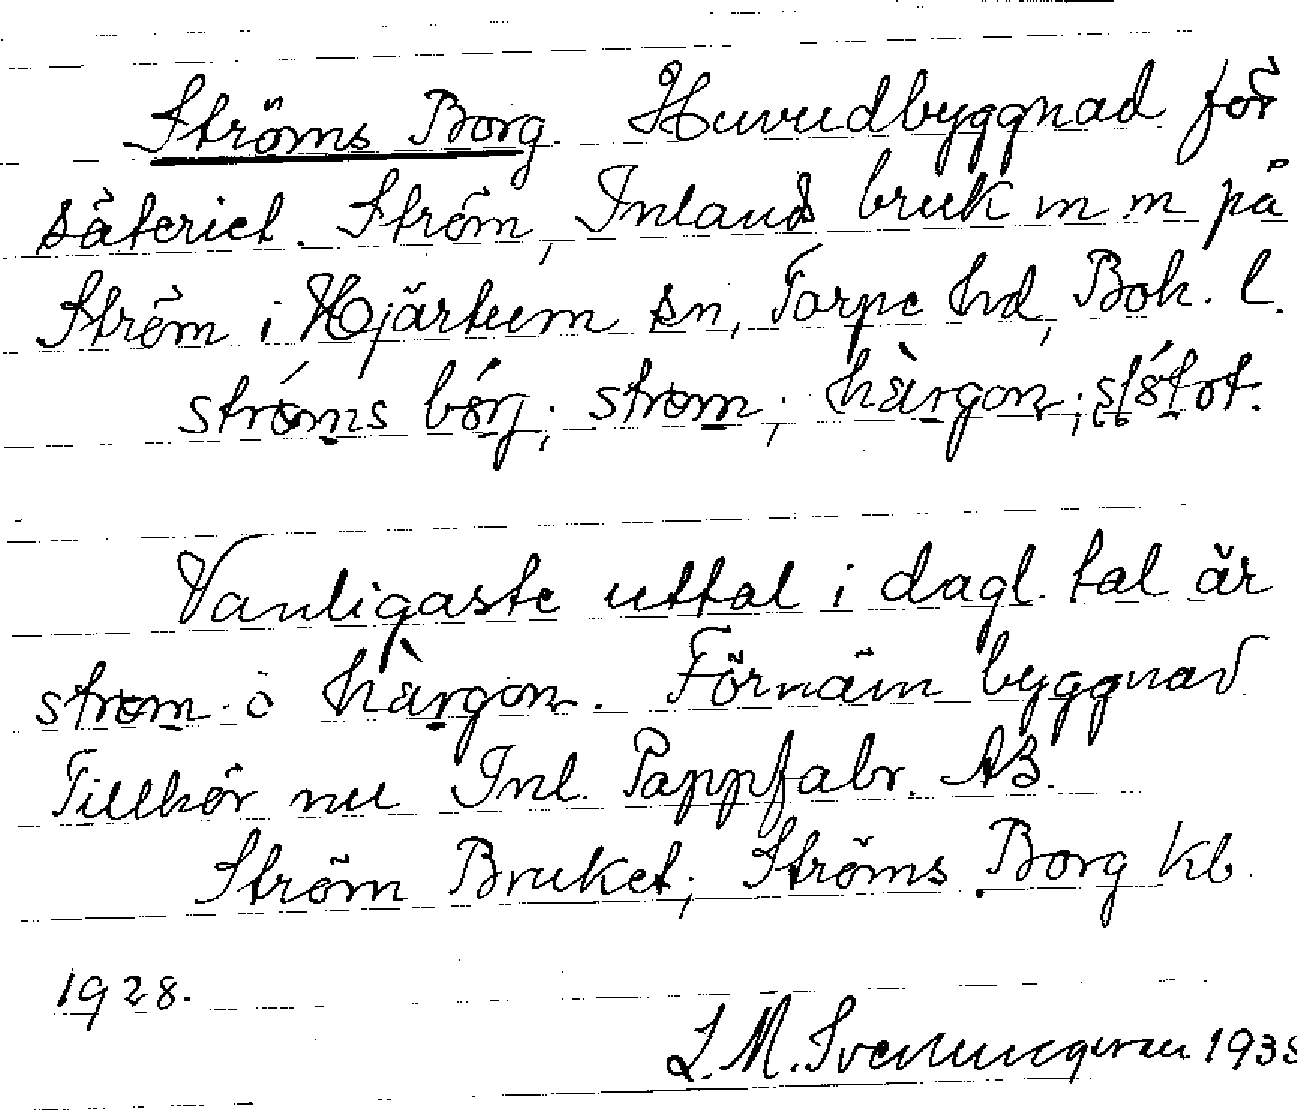 Ströms Borg. Huvudbyggnad för
säteriet. Ström, Inlands bruk m m på
Ström i Hjärtum sn, Torpe hd, Boh. l.
stróms bórj; strøm; hàrgon; slótet.
Vanligaste uttal i dagl. tal är
strøm. o hàrgon. Förnäm byggnad
Tillhör nu Inl. Pappfabr. AB.
Ström Bruket; Ströms Borg kb.
1928.
L. M. Svenungsson 1935